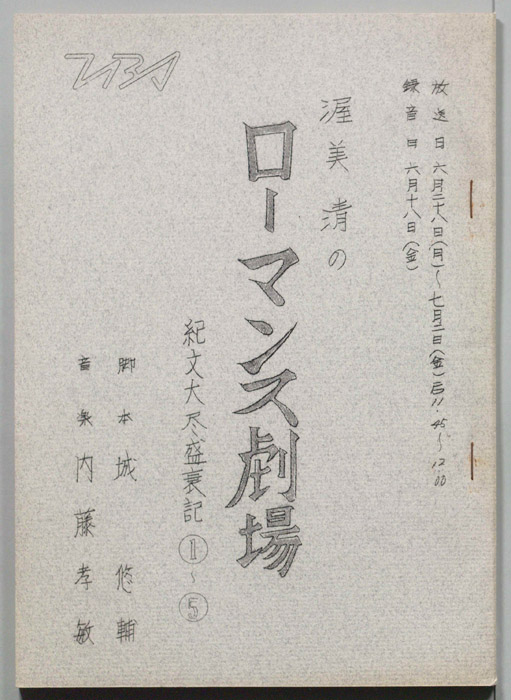 放送日 六月二十八日(月)〜七月二日(金)后11.45〜12.00
録音日 六月十八日(金)
渥美清の
ローマンス劇場
紀文大尽盛衰記 ①〜⑤
脚本 城 悠輔
音楽 内藤孝敏
TBS